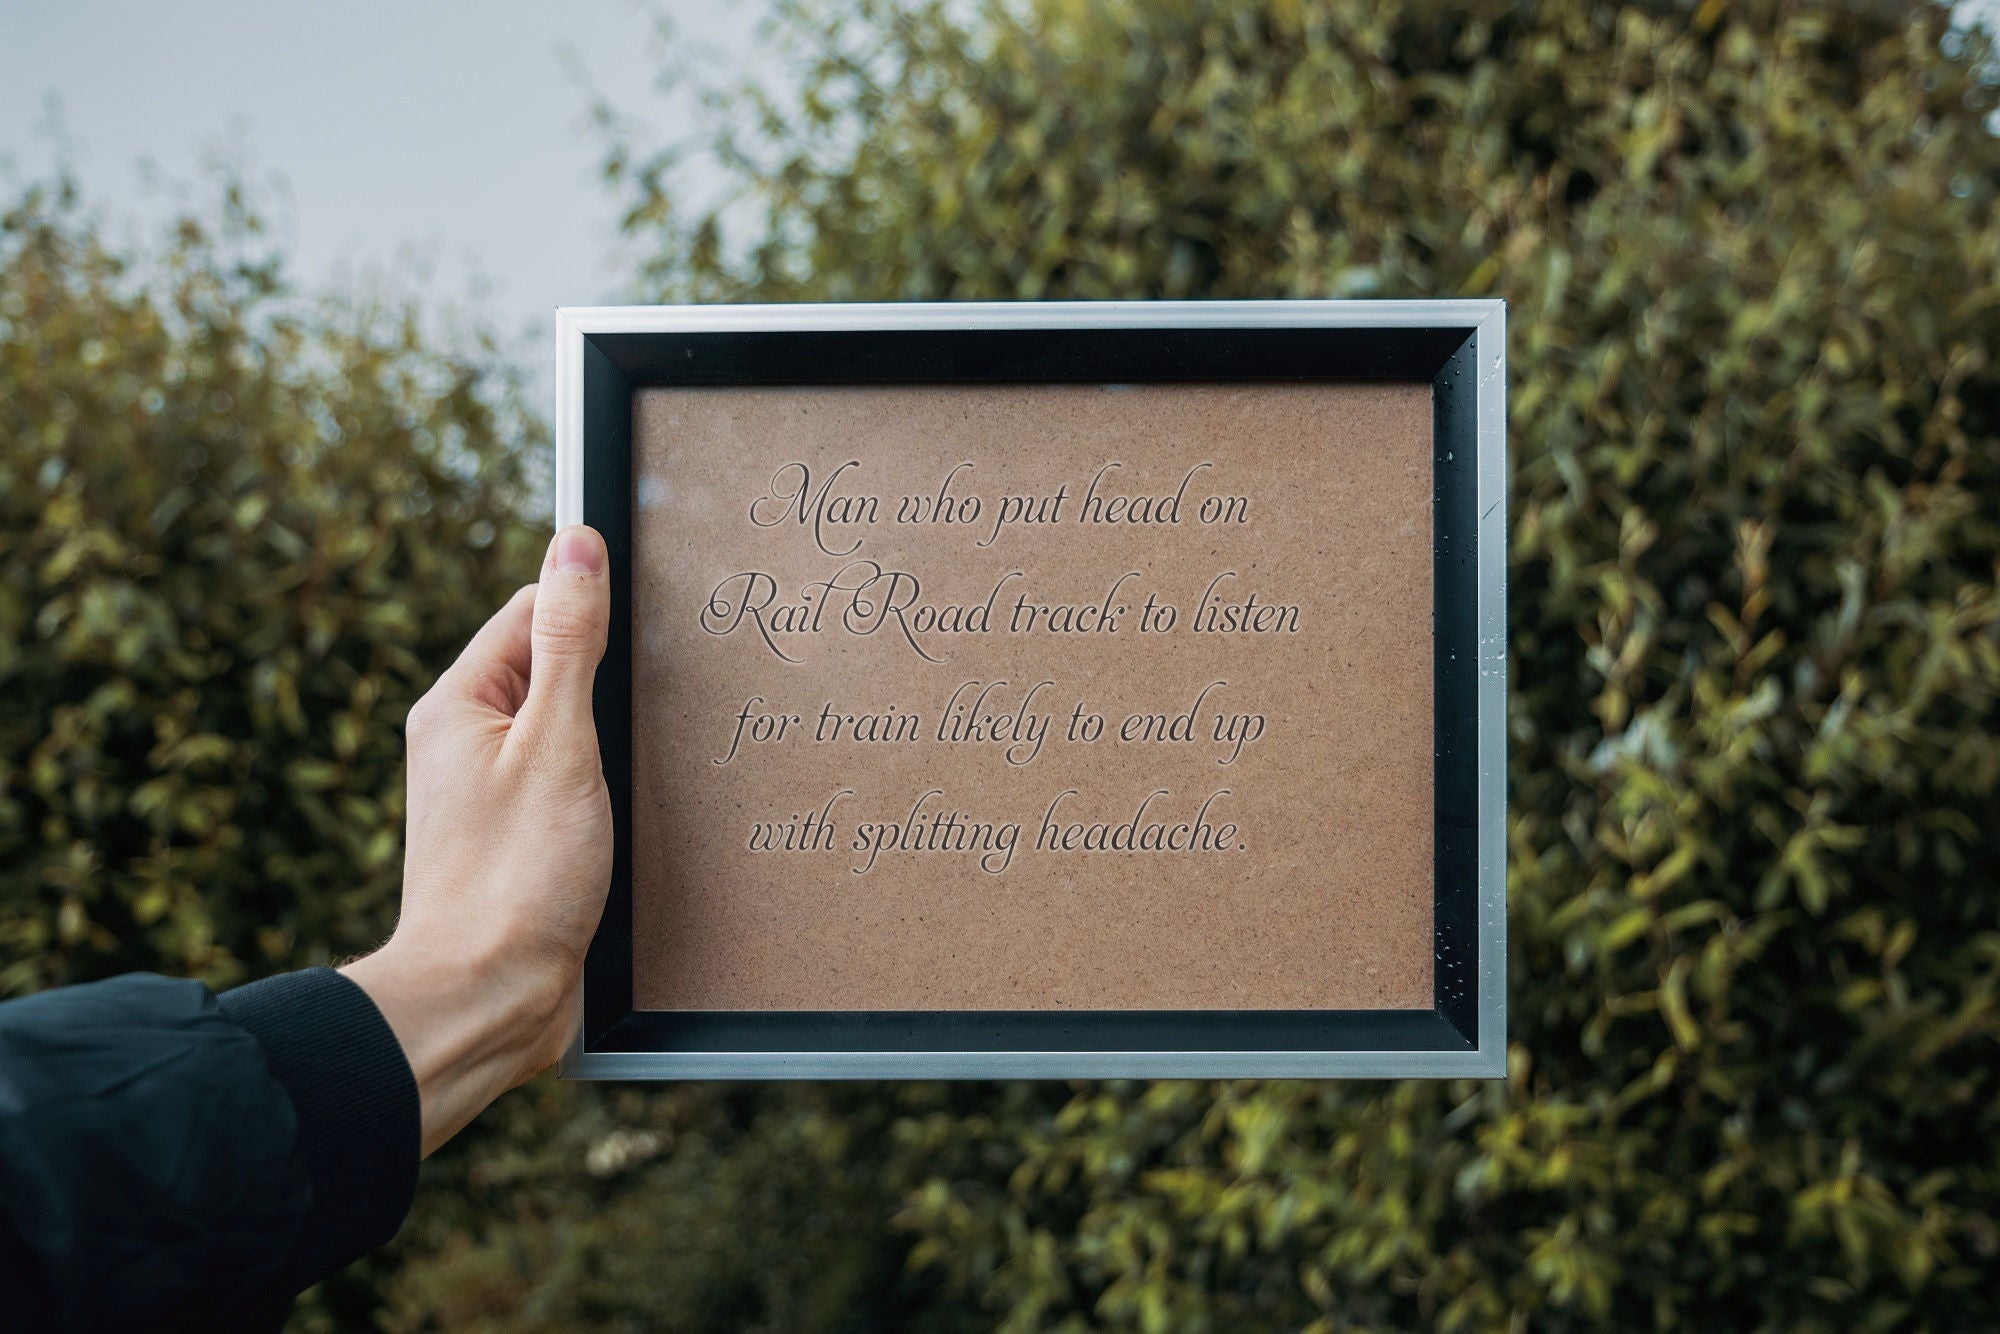 Man who put head on
Rail Road track to listen
for train likely to end up
with splitting headache.